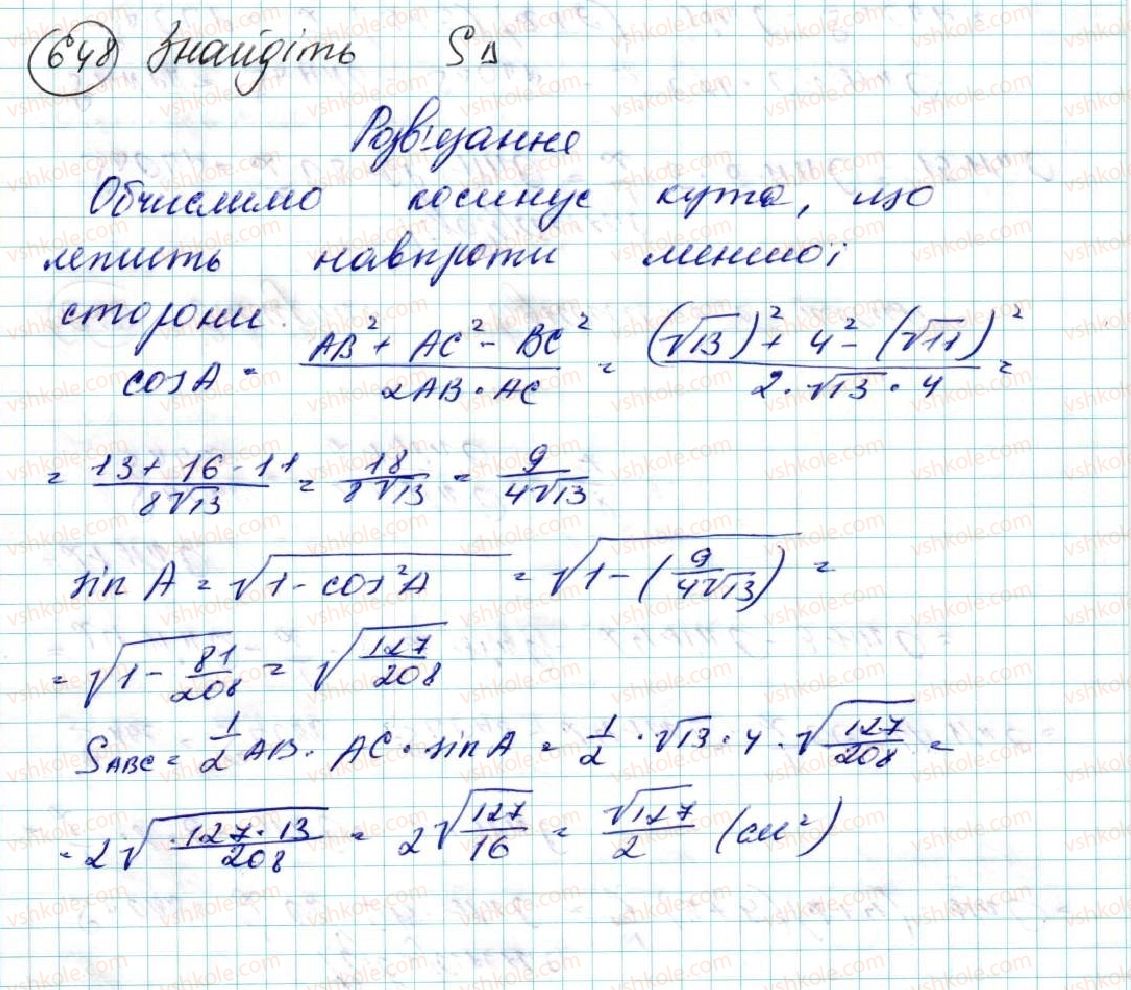 648 Знайдіть S△
Розв'язання
Обчислимо косинус кута, що
лежить навпроти меншої
сторони.
cos A = (AB² + AC² - BC²)/(2AB · AC) = ((√13)² + 4² - (√11)²)/(2 · √13 · 4) =
= (13 + 16 - 11)/(8√13) = 18/(8√13) = 9/(4√13)
sin A = √(1 - cos²A) = √(1 - (9/(4√13))) =
= √(1 - 81/208) = √(127/208)
S_ABC = 1/2 AB · AC · sin A = 1/2 · √13 · 4 · √(127/208) =
= 2√(127 · 13/208) = 2√(127/16) = √127/2 (см²)